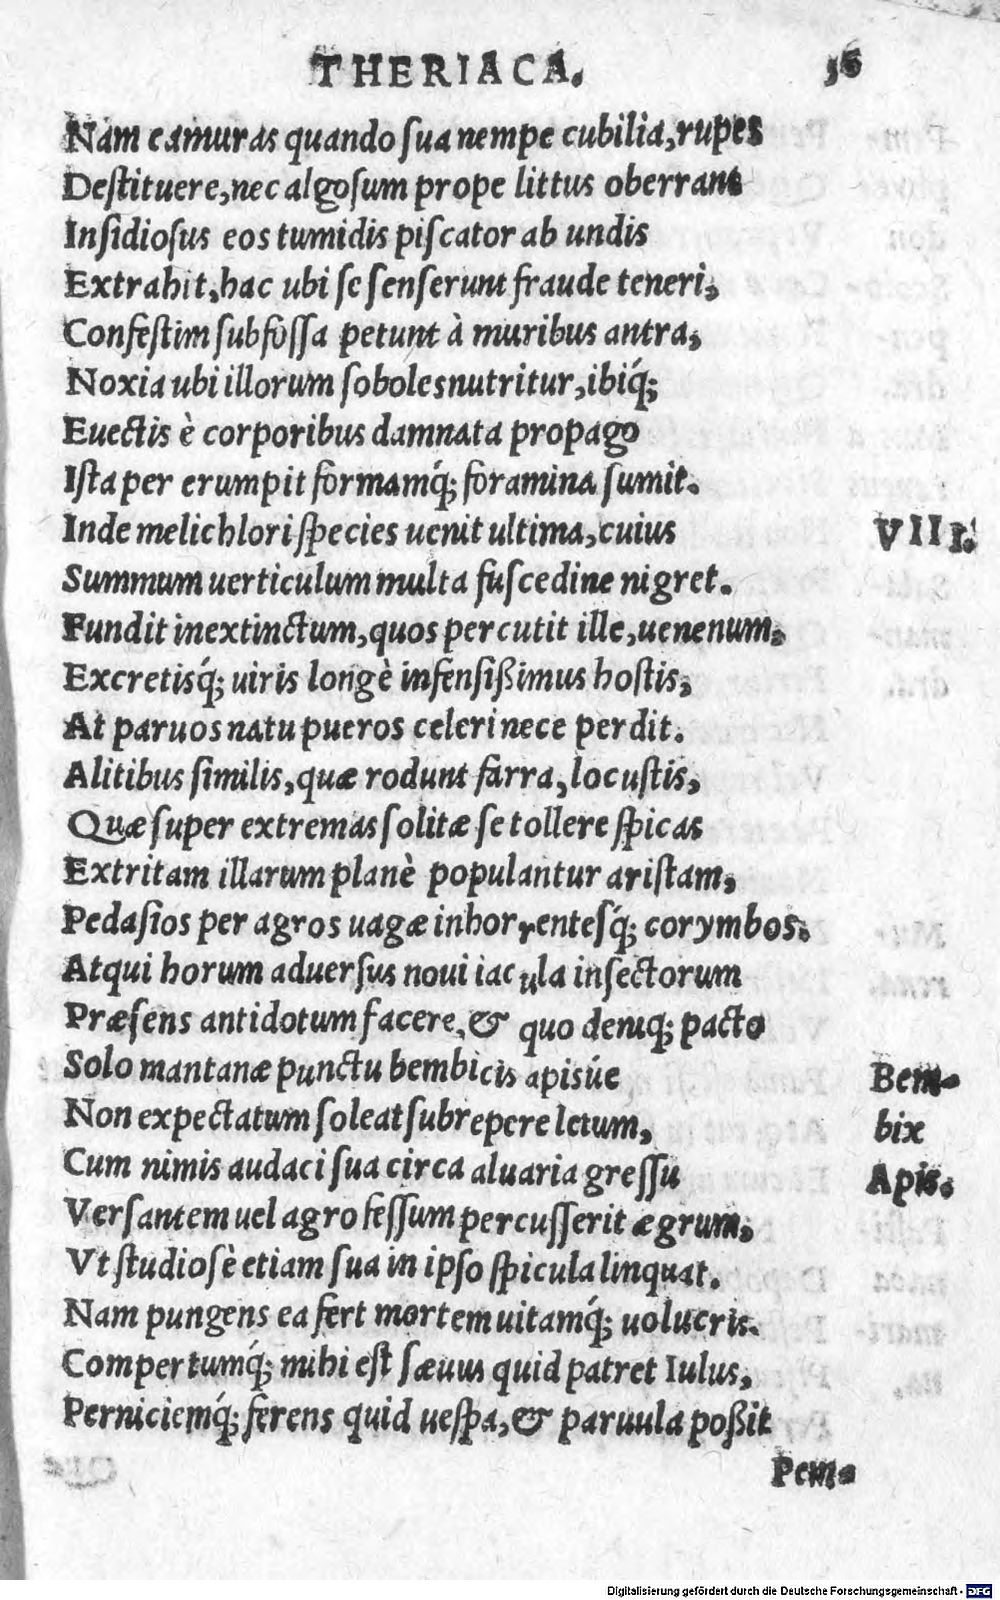 THERIACA. 36
Nam camuras quando ſua nempe cubilia,rupes
Deſtituere,nec algoſum prope littus oberrant
Inſidioſus eos tumidis piſcator ab undis
Extrahit,hac ubi ſe ſenſerunt fraude teneri,
Confeſtim ſubfoſſa petunt à muribus antra,
Noxia ubi illorum ſoboles nutritur,ibiq́;
Euectis è corporibus damnata propago
Iſta per erumpit formamq́; foramina ſumit.
Inde melichlori ſpecies uenit ultima,cuius VIII.
Summum uerticulum multa fuſcedine nigret.
Fundit inextinctum,quos percutit ille,uenenum,
Excretisq́; uiris longè infenſißimus hoſtis,
At paruos natu pueros celeri nece perdit.
Alitibus ſimilis,quæ rodunt farra,locuſtis,
Quæ ſuper extremas ſolitæ ſe tollere ſpicas
Extritam illarum planè populantur ariſtam,
Pedaſios per agros uagæ inhorrentesq́; corymbos.
Atqui horum aduerſus noui iacula inſectorum
Præſens antidotum facere,& quo deniq; pacto
Solo mantanæ punctu bembicis apisúe Bem-
Non expectatum ſoleat ſubrepere letum, bix
Cum nimis audaci ſua circa aluaria greſſu Apis.
Verſantem uel agro feſſum percuſſerit ægrum,
Vt ſtudioſè etiam ſua in ipſo ſpicula linquat.
Nam pungens ea fert mortem uitamq́; uolucris.
Compertumq́; mihi eſt ſæuus quid patret Iulus,
Perniciemq́; ferens quid ueſpa,& paruula poßit
Pem-
Digitalisierung gefördert durch die Deutsche Forschungsgemeinschaft - DFG